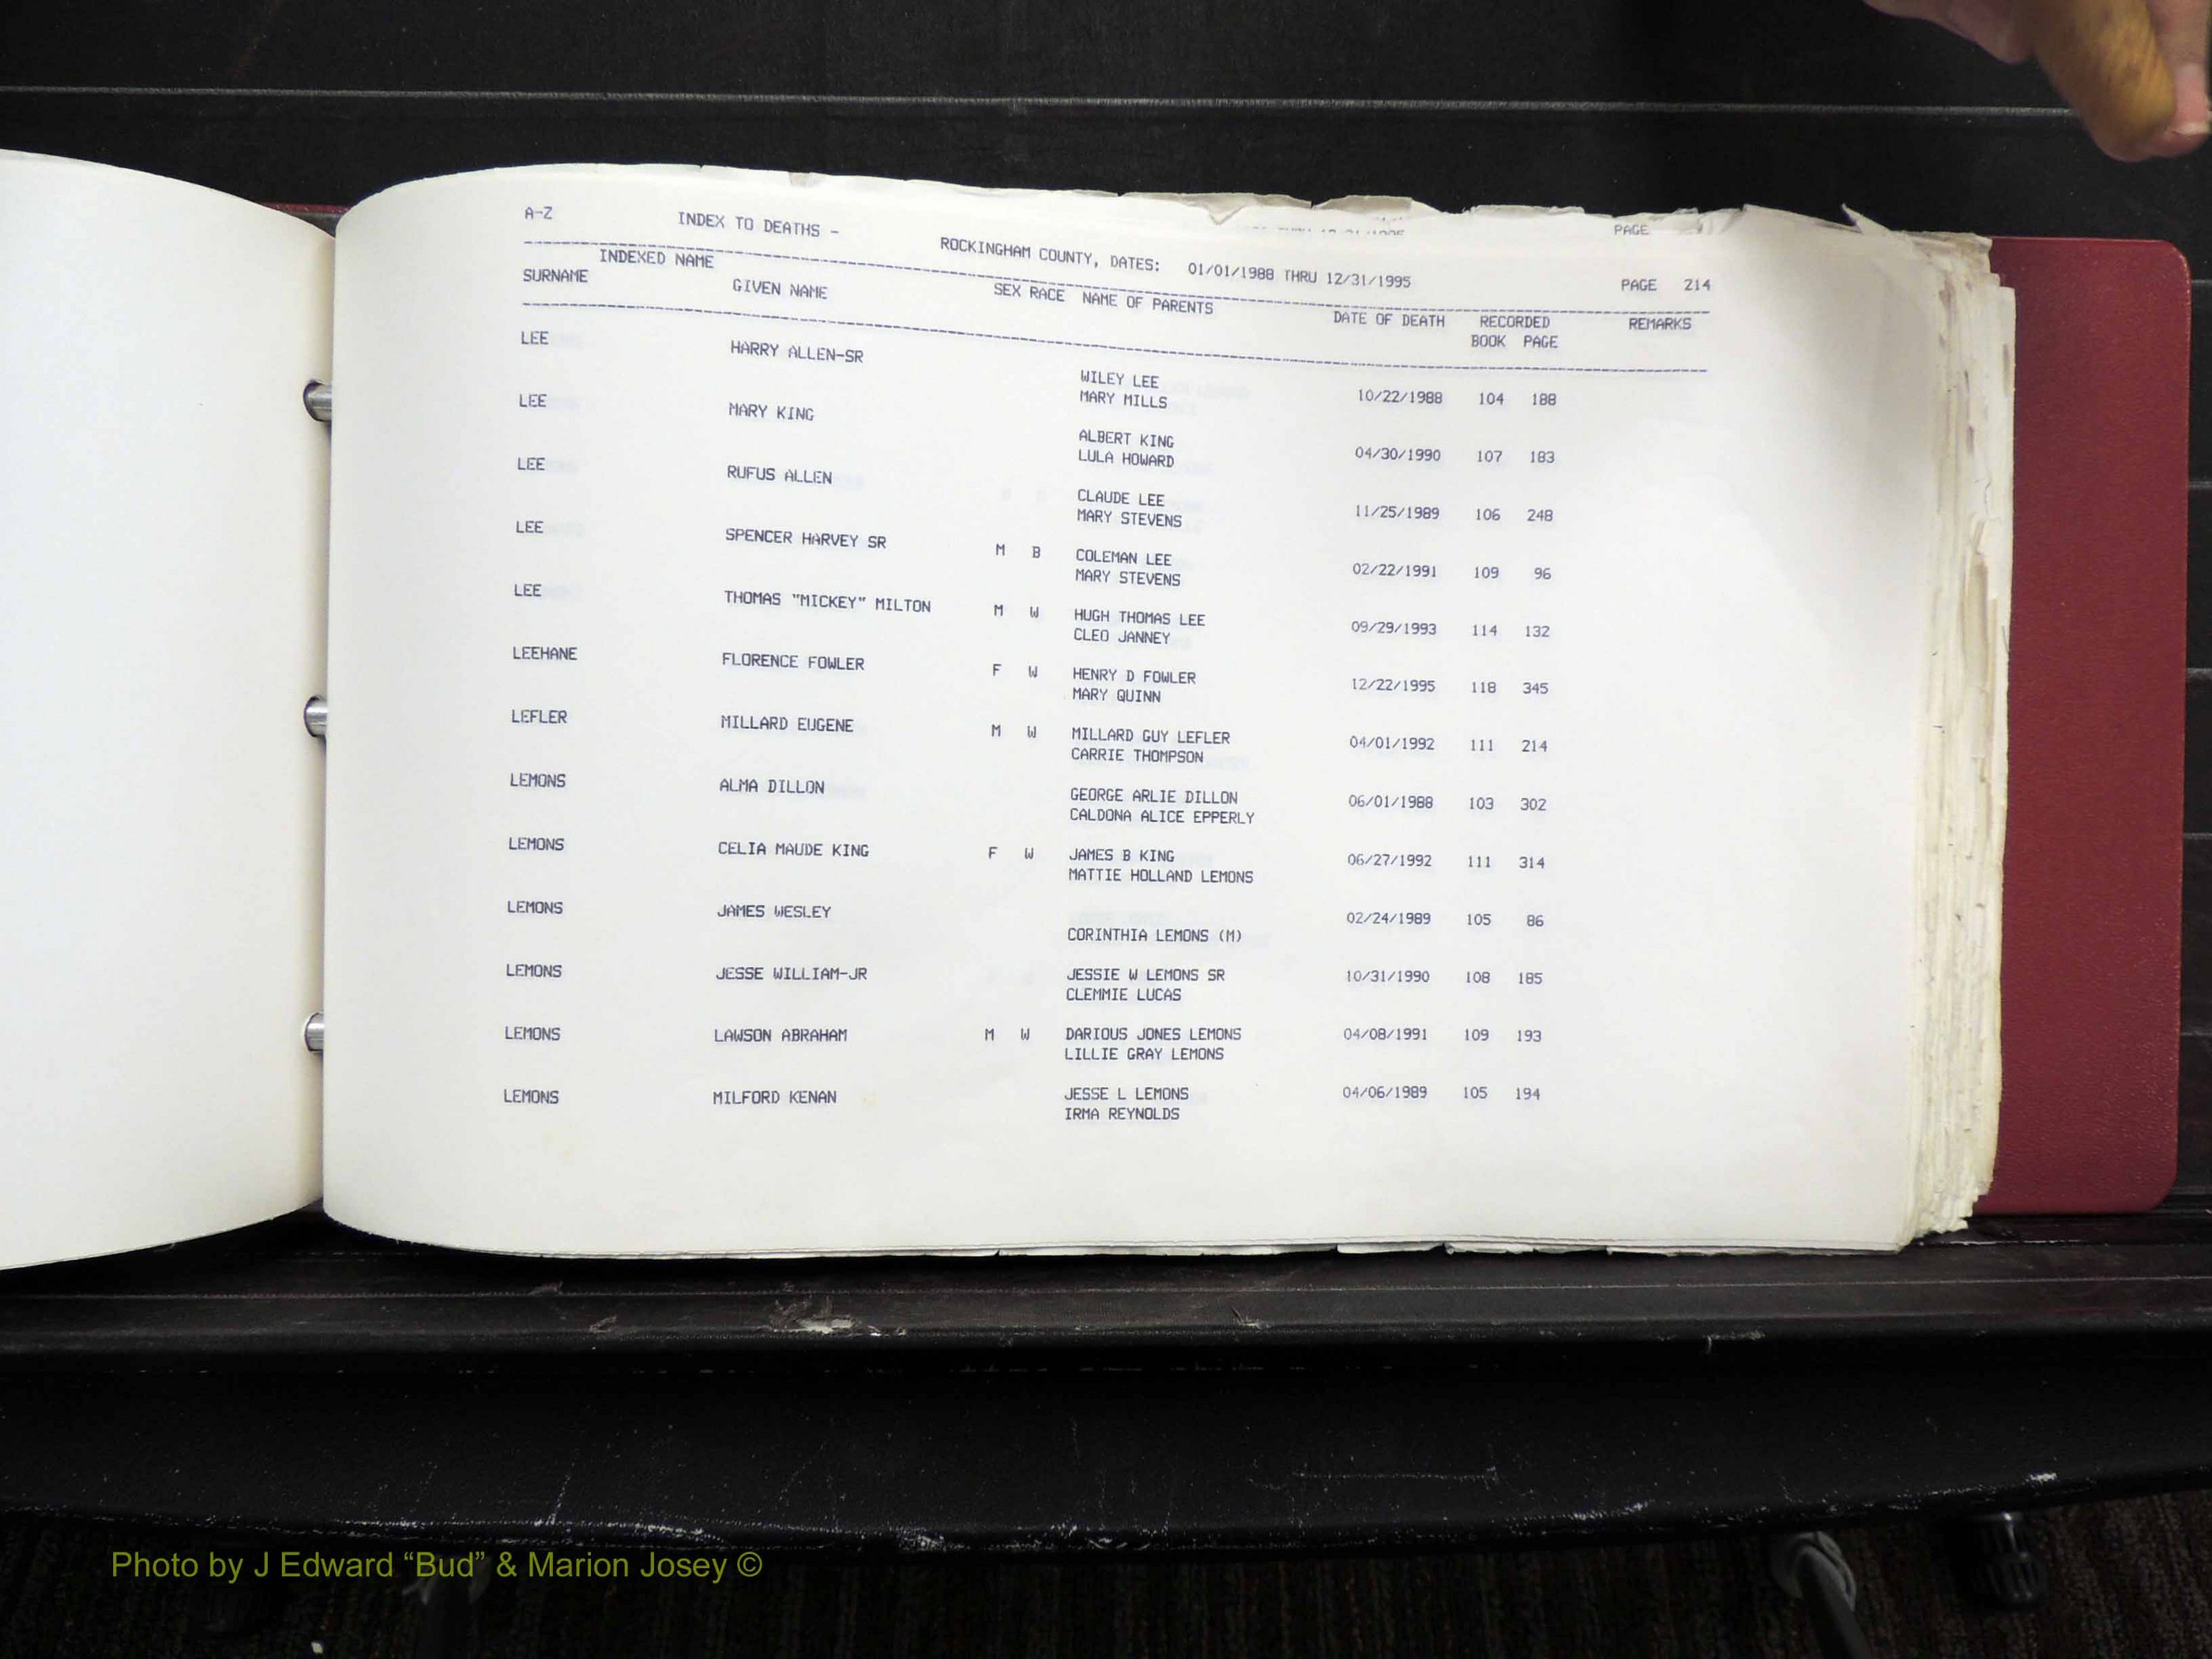 A-Z INDEX TO DEATHS - ROCKINGHAM COUNTY, DATES: 01/01/1988 THRU 12/31/1995 PAGE 214
PAGE
INDEXED NAME
SURNAME GIVEN NAME SEX RACE NAME OF PARENTS DATE OF DEATH RECORDED REMARKS
BOOK PAGE
LEE HARRY ALLEN-SR WILEY LEE 10/22/1988 104 188
MARY MILLS
LEE MARY KING ALBERT KING 04/30/1990 107 183
LULA HOWARD
LEE RUFUS ALLEN CLAUDE LEE 11/25/1989 106 248
MARY STEVENS
LEE SPENCER HARVEY SR M B COLEMAN LEE 02/22/1991 109 96
MARY STEVENS
LEE THOMAS "MICKEY" MILTON M W HUGH THOMAS LEE 09/29/1993 114 132
CLEO JANNEY
LEEHANE FLORENCE FOWLER F W HENRY D FOWLER 12/22/1995 118 345
MARY QUINN
LEFLER MILLARD EUGENE M W MILLARD GUY LEFLER 04/01/1992 111 214
CARRIE THOMPSON
LEMONS ALMA DILLON GEORGE ARLIE DILLON 06/01/1988 103 302
CALDONA ALICE EPPERLY
LEMONS CELIA MAUDE KING F W JAMES B KING 06/27/1992 111 314
MATTIE HOLLAND LEMONS
LEMONS JAMES WESLEY 02/24/1989 105 86
CORINTHIA LEMONS (M)
LEMONS JESSE WILLIAM-JR JESSIE W LEMONS SR 10/31/1990 108 185
CLEMMIE LUCAS
LEMONS LAWSON ABRAHAM M W DARIOUS JONES LEMONS 04/08/1991 109 193
LILLIE GRAY LEMONS
LEMONS MILFORD KENAN JESSE L LEMONS 04/06/1989 105 194
IRMA REYNOLDS
Photo by J Edward “Bud” & Marion Josey ©